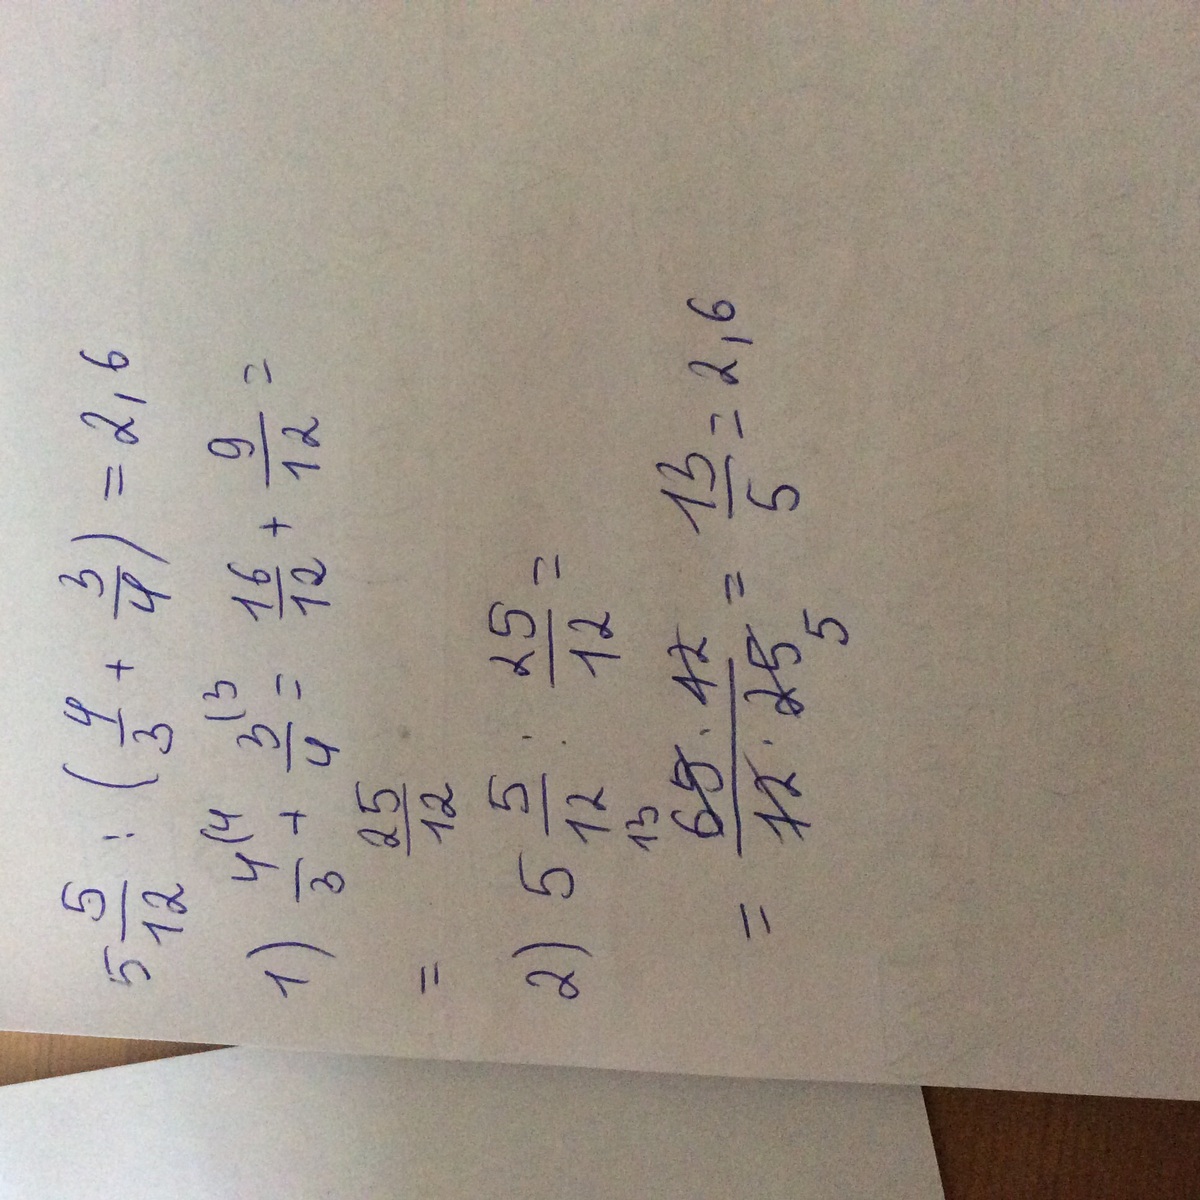 5 5/12 : (4/3 + 3/4) = 2,6
1) 4(4/3 + 3(3/4 = 16/12 + 9/12 =
= 25/12
2) 5 5/12 : 25/12 =
13
= 65 · 12/12 · 25 = 13/5 = 2,6
5